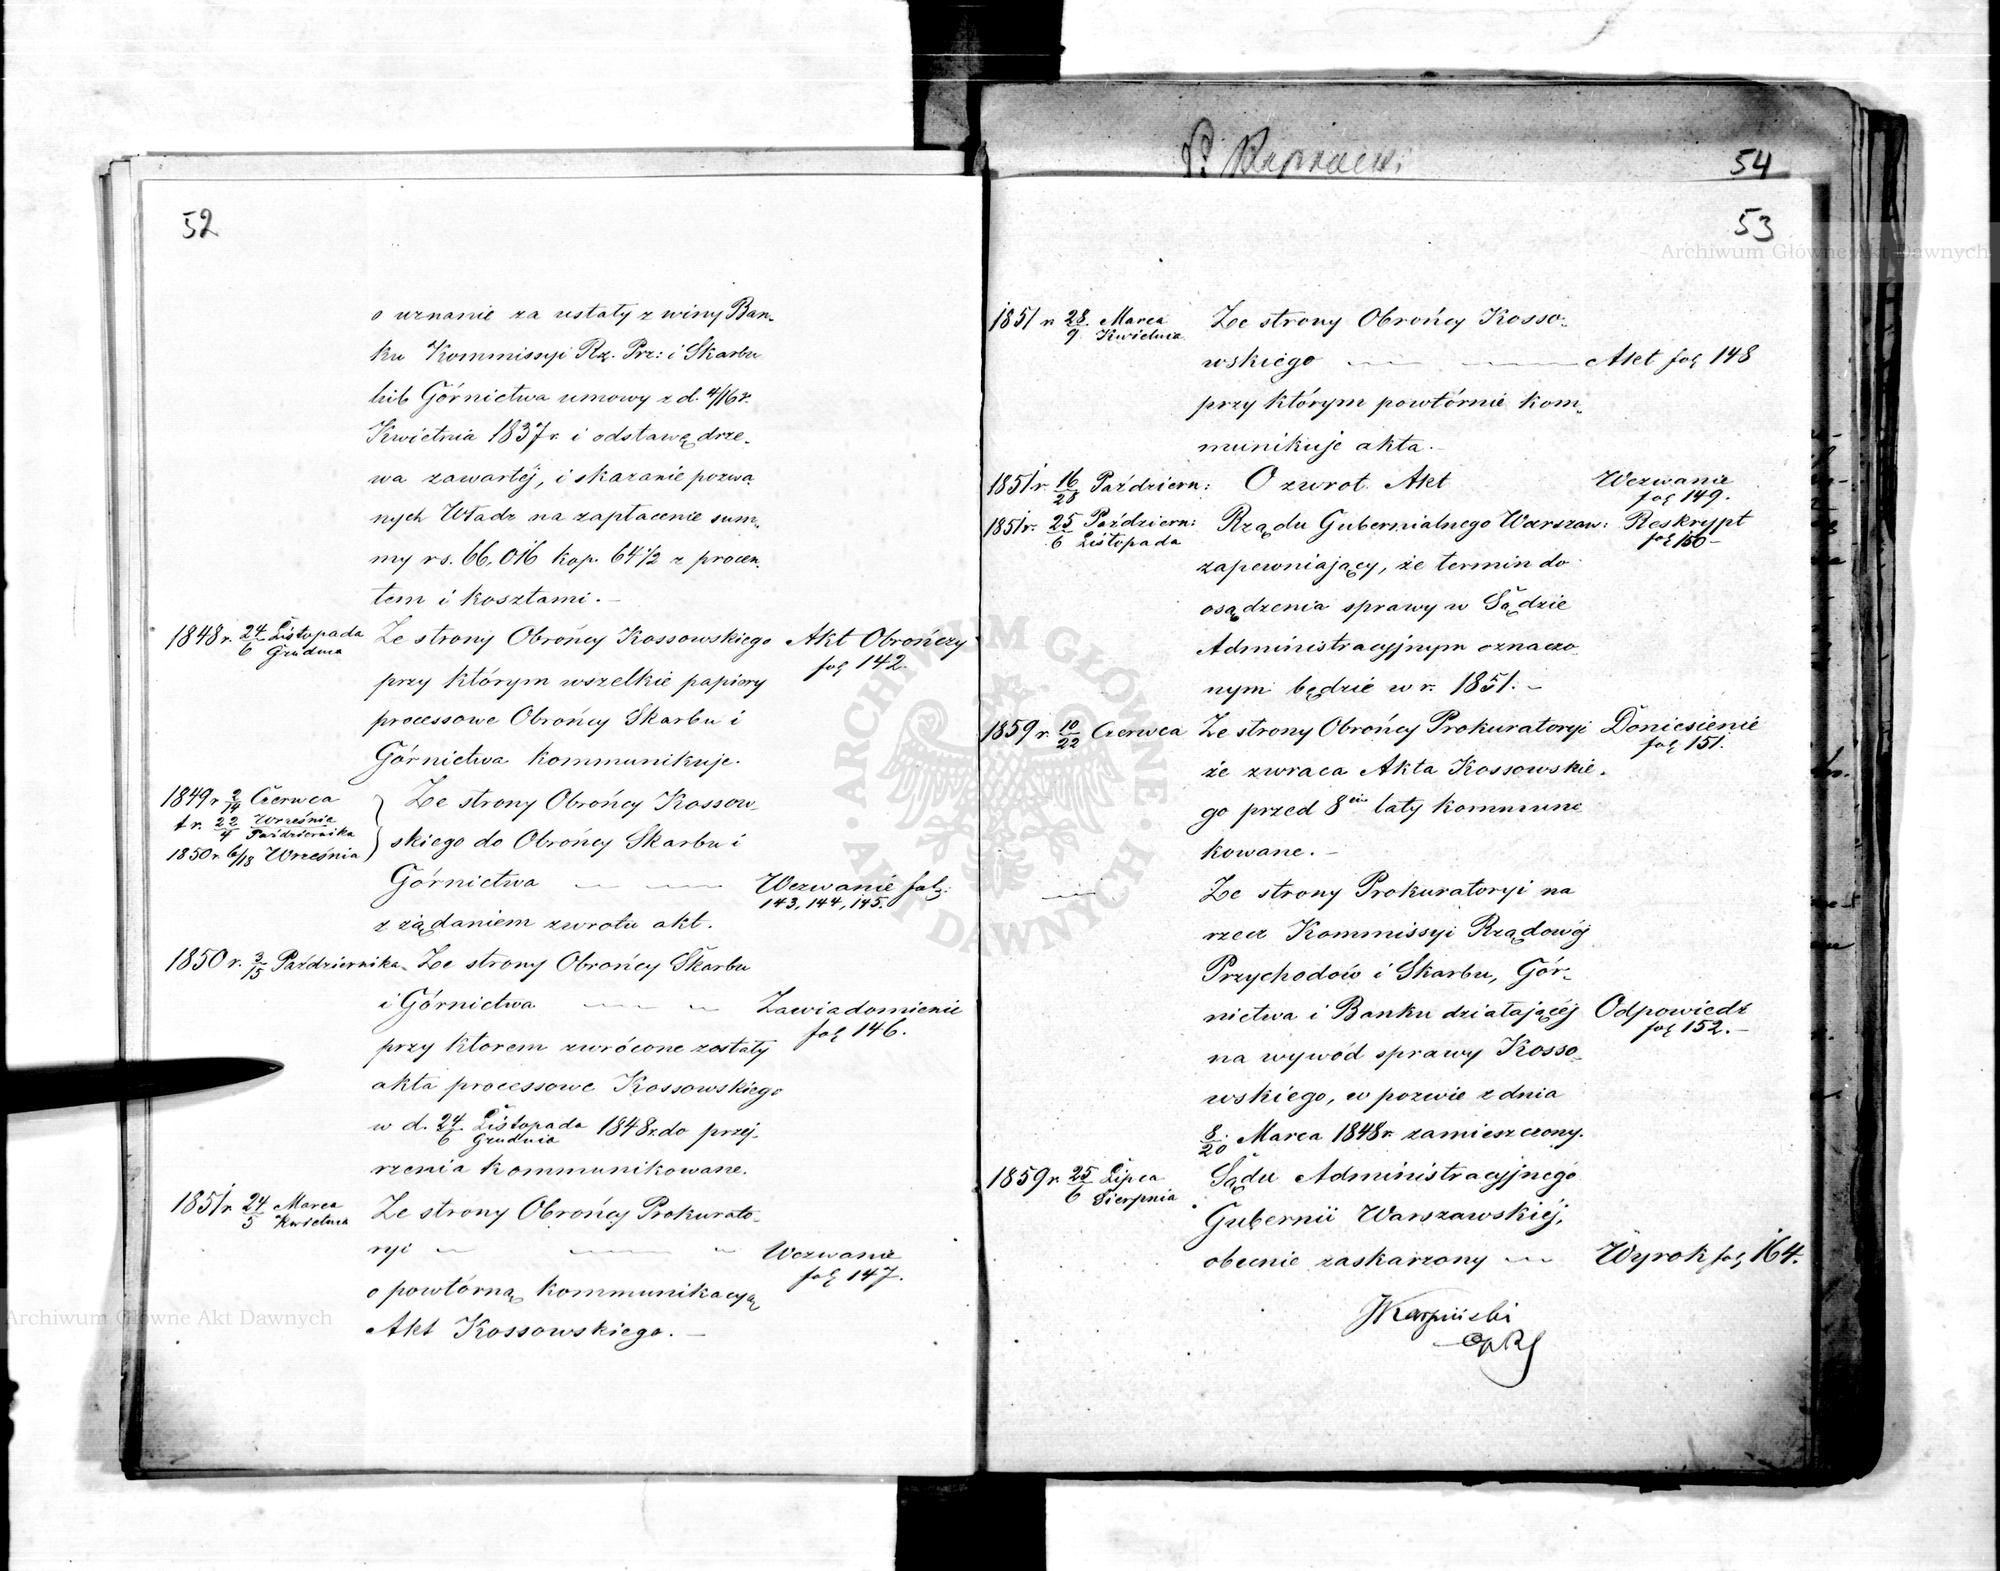 52
o uznanie za ustały z winy Ban-
ku Kommissyi Rz. Prz: i Skarbu
lub Górnictwa umowy z d. 4/16 r.
Kwietnia 1837 r. i odstawę drze-
wa zawartéj, i skazanie pozwa-
nych Władz na zapłacenie sum-
my rs. 66,016 kop. 64 1/2 z procen-
tem i kosztami. –
1848 r. 24/6 Listopada Grudnia Ze strony Obrońcy Kossowskiego Akt Obrończy
fol 142.
przy którym wszelkie papiery
processowe Obrońcy Skarbu i
Górnictwa kommunikuje.
1849 r 2/14 Czerwca
t r. 22/4 Września Października
1850 r. 6/18 Września
Ze strony Obrońcy Kossow-
skiego do Obrońcy Skarbu i
Górnictwa Wezwanie fol:
143, 144, 145.
z żądaniem zwrotu akt.
1850 r. 3/15 Października Ze strony Obrońcy Skarbu
i Górnictwa Zawiadomienie
fol 146.
przy ktorem zwrócone zostały
akta processowe Kossowskiego
w d. 24/6 Listopada Grudnia 1848 r. do przej-
rzenia kommunikowane.
1851 r. 24/5 Marca Kwietnia Ze strony Obrońcy Prokurato-
ryi Wezwanie
fol 147.
o powtórną kommunikacyą
Akt Kossowskiego. –
54
53
1851 r 28/9 Marca Kwietnia Ze strony Obrońcy Kosso-
wskiego Akt fol 148
przy którym powtórnie kom-
munikuje akta.
1851 r. 16/28 Październ: O zwrot Akt Wezwanie
fol 149.
1851 r. 25/6 Październ: Listopada Rządu Gubernialnego Warszaw: Reskrypt
fol 150 –
zapewniający, że termin do
osądzenia sprawy w Sądzie
Administracyjnym oznaczo-
nym będzie w r. 1851. –
1859 r. 10/22 Czerwca Ze strony Obrońcy Prokuratoryi Doniesienie
fol 151.
że zwraca Akta Kossowskie-
go przed 8iu laty kommuni
kowane. –
Ze strony Prokuratoryi na
rzecz Kommissyi Rządowéj
Przychodów i Skarbu, Gór-
nictwa i Banku działającéj Odpowiedź
fol 152. –
na wywód sprawy Kosso-
wskiego, w pozwie z dnia
8/20 Marca 1848 r. zamieszczony.
1859 r. 25/6 Lipca Sierpnia Sądu Administracyjnego
Gubernii Warszawskiéj,
obecnie zaskarżony Wyrok fol 164.
JKarpiński
Archiwum Główne Akt Dawnych
Archiwum Główne Akt Dawnych
ARCHIWUM GŁÓWNE AKT DAWNYCH